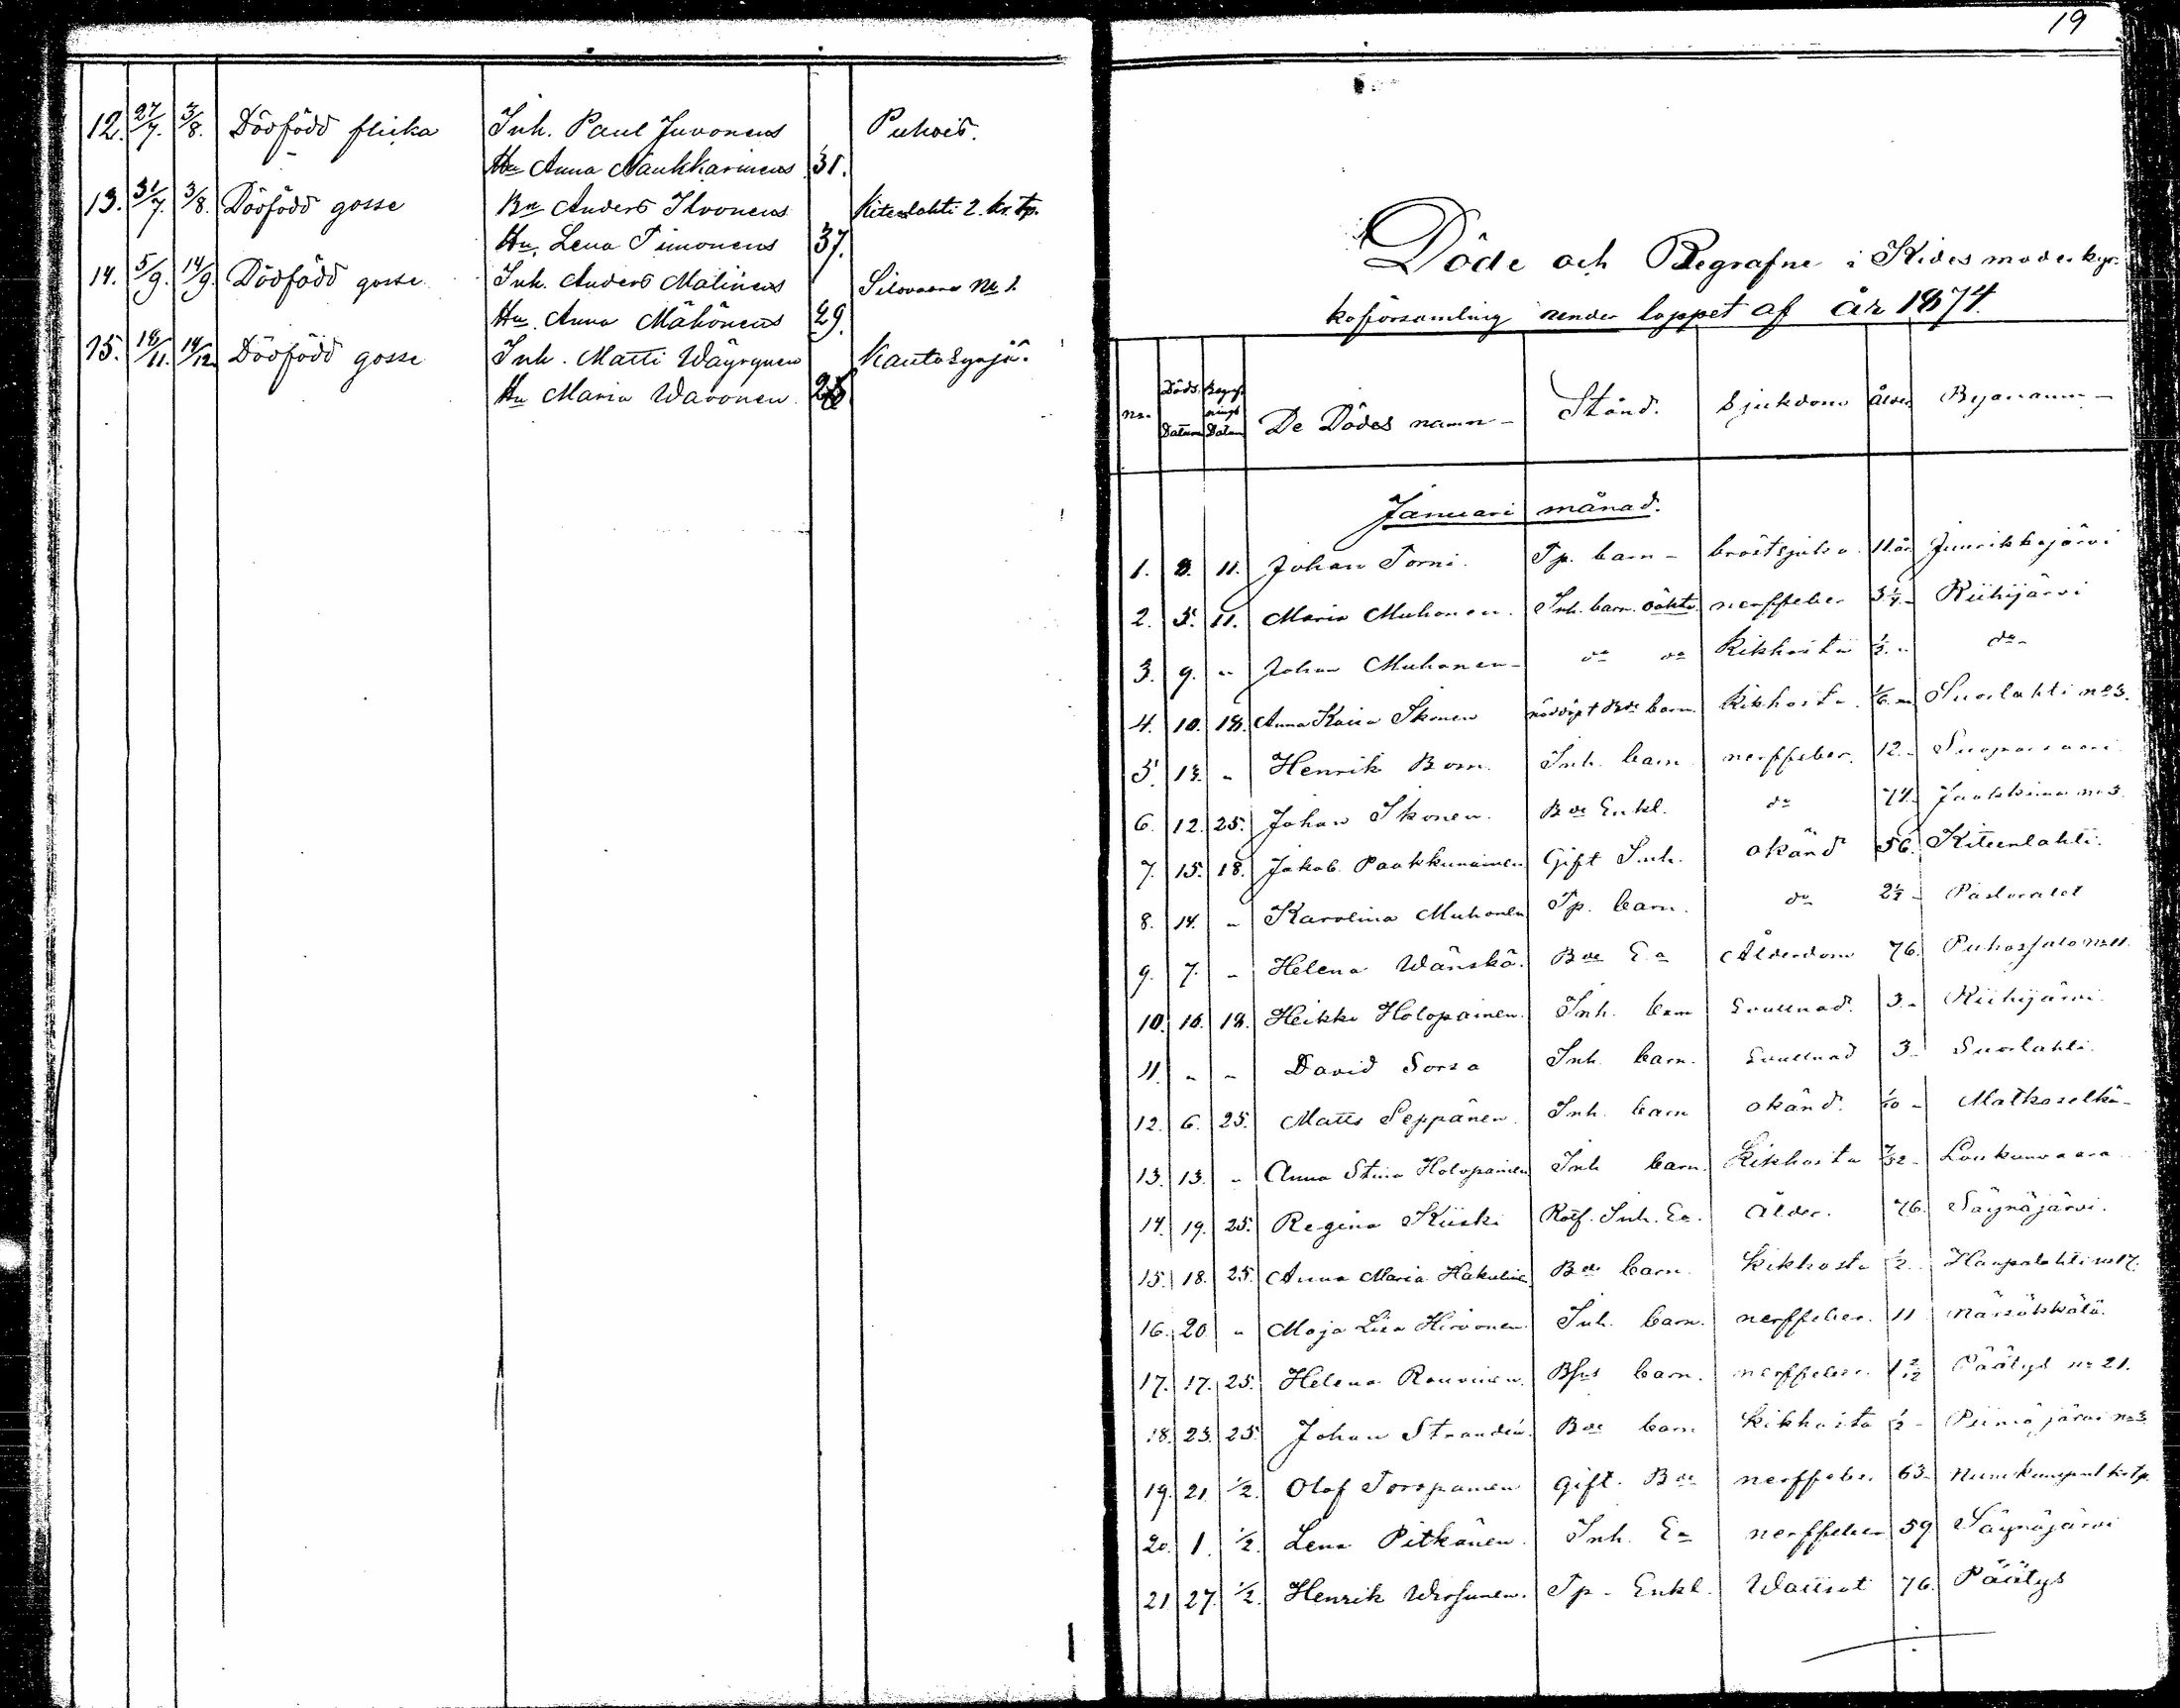 12. 27/7. 3/8. Dödfödd flicka Inh. Paul Juvonens Puhois.
Hu Anna Naukkarinens 31.
13. 31/7. 3/8. Dödfödd gosse Bn Anders Ikonens Kiteenlahti 2. kr. tp.
Hu. Lena Timonens 37.
14. 5/9. 14/9. Dödfödd gosse Inh. Anders Malinens Silovaara No 1.
Hu. Anna Mähönens 29.
15. 18/11. 14/12 Dödfödd gosse Inh. Matti Wäyrynen Kautosyrjä.
Hu Maria Waronen
19
Döde och Begrafne i Kides moderkyr-
koförsamling under loppet af år 1874.
no. Döds Datum Begrafnings Datum De Dödes namn - Stånd. Sjukdom Ålder Byanamn -
Januari månad.
1. 3. 11. Johan Torni. Tp. barn - bröstsjuka 11 år Juurikkajärvi
2. 5. 11. Maria Muhonen. Inh. barn oäkta. nerffeber Riihijärvi
3. 9. " Johan Muhonen - do do Kikhosta 1/2. " do -
4. 10. 18. Anna Kaisa Ikonen Bde barn. Kikhosta. Suorlahti no 3.
5. 13. " Henrik Bom. Inh. barn nerffeber. 12. -
6. 12. 25. Johan Ikonen. Bde Enkl. do 74. Jaakkima no 3.
7. 15. 18. Jakob Paakkunainen Gift Inh. okänd 56. Kiteenlahti.
8. 14. " Karolina Muhonen Tp. barn. do 2 1/2 - Pastoratet
9. 7. " Helena Wänskä. Bde Ea Ålderdom 76. Puhossalo no 11.
10. 16. 18. Heikki Holopainen. Inh. barn Svullnad. 3. - Riihijärvi.
11. " " David Sorsa Inh. barn. Svullnad 3 - Suorlahti.
12. 6. 25. Matts Seppänen. Inh. barn okänd. 1/10 - Matkaselkä -
13. 13. " Anna Stina Holopainen Inh barn. Kikhosta Loukunvaara
14. 19. 25. Regina Kiiski Rotf. Inh. Ea. Ålder. 76. Säynäjärvi.
15. 18. 25. Anna Maria Hakulinen Bde barn. Kikhosta 1/2 Haapalahti no 17.
16. 20. " Maja Lisa Hirvonen Inh. barn. nerffeber. 11 Närsäkkälä.
17. 17. 25. Helena Rouvinen. barn. nerffeber. 1 2/12 Päätys no 21.
18. 23. 25. Johan Strandén. Bde barn Kikhosta 1/2 - Piimäjärvi no 3.
19. 21. 1/2. Olof Toropainen gift. Bde nerffeber. 63 -
20. 1. 1/2. Lena Pitkänen. Inh. Ea nerffeber 59 Säynäjärvi
21. 27. 1/2. Henrik Tp - Enkl. 76. Päätys